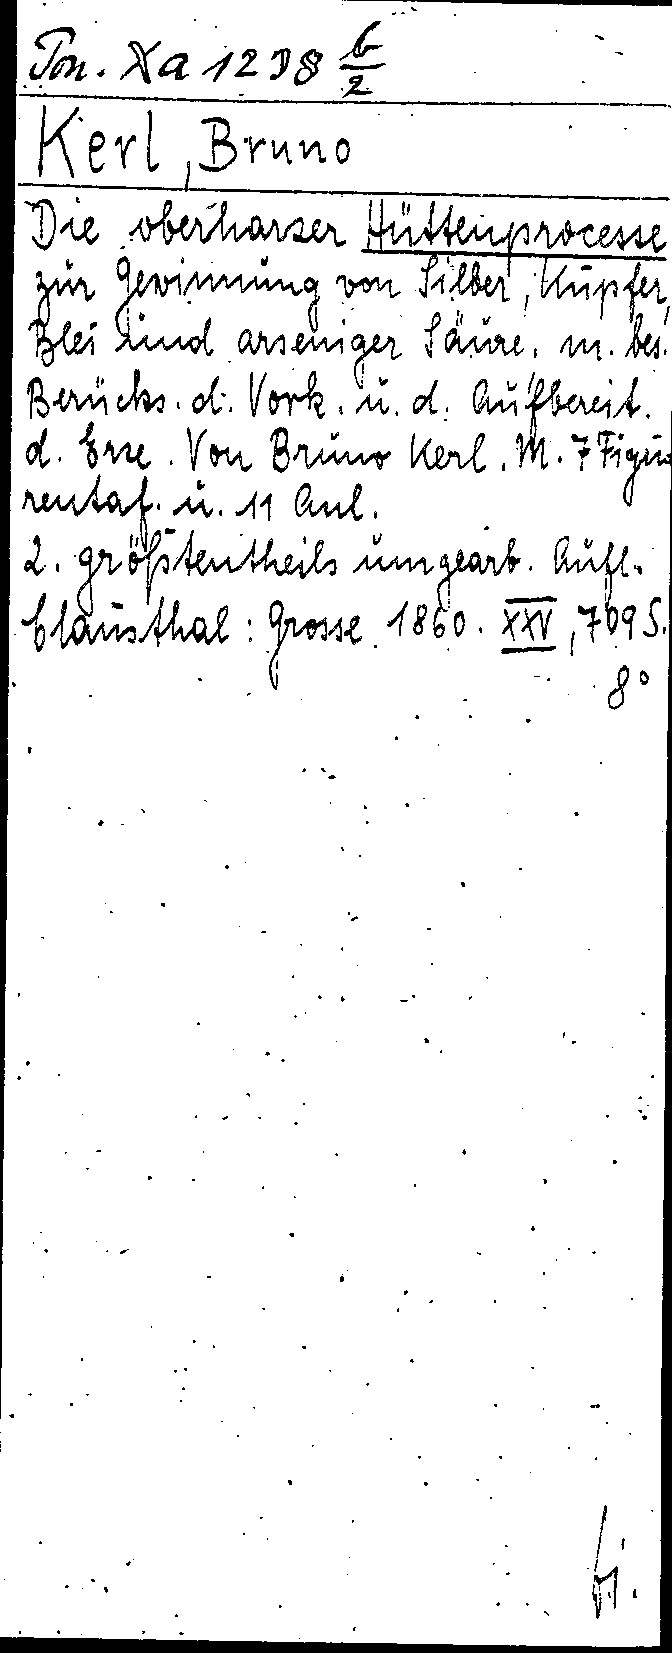 Pon. Xa 1238 b/2
Kerl, Bruno
Die oberharzer Hüttenprocesse
zur Gewinnung von Silber, Kupfer,
Blei und arseniger Säure. m. bes.
Berücks. d. Vork. u. d. Aufbereit.
d. Erze. Von Bruno Kerl. M. 7 Figu
rentaf. u. 11 Anl.
2. größtentheils umgearb. Aufl.
Clausthal: Grosse 1860. XXV, 709 S.
8°